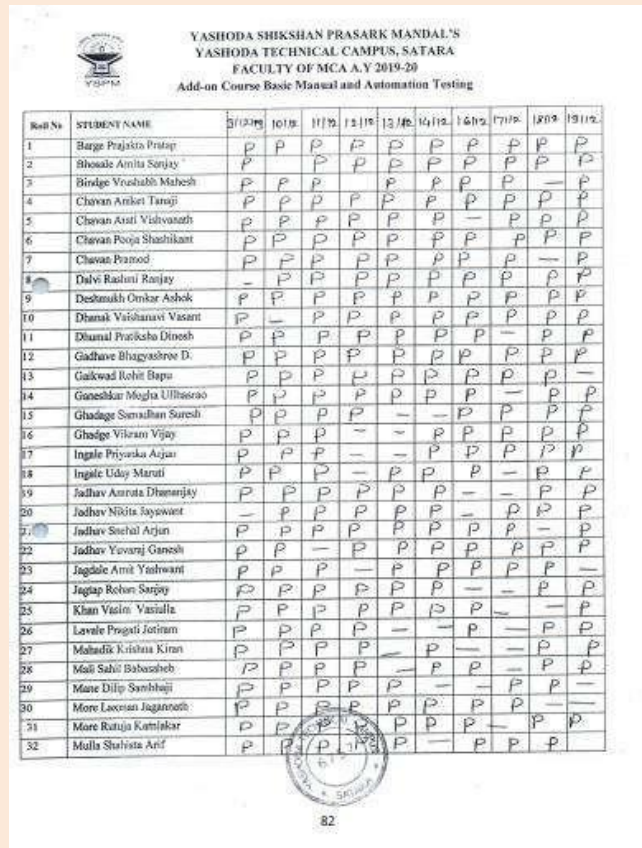 YASHODA SHIKSHAN PRASARK MANDAL'S
YASHODA TECHNICAL CAMPUS, SATARA
FACULTY OF MCA A.Y 2019-20
Add-on Course Basic Manual and Automation Testing
YSPM
Roll No STUDENT NAME 10/12 11/12 12/12 13/12 14/12 16/12 17/12 18/12 19/12
1 Barge Prajakta Pratap P P P P P P P P P P
2 Bhosale Amita Sanjay P P P P P P P P P
3 Bindge Vrushabh Mahesh P P P P P P P — P
4 Chavan Aniket Tanaji P P P P P P P P P P
5 Chavan Arati Vishvanath P P P P P P — P P P
6 Chavan Pooja Shashikant P P P P P P P P P P
7 Chavan Pramod P P P P P P P P — P
8 Dalvi Rashmi Ranjay – P P P P P P P P P
9 Deshmukh Omkar Ashok P P P P P P P P P P
10 Dhanak Vaishanavi Vasant P – P P P P P P P P
11 Dhumal Pratiksha Dinesh P P P P P P P — P P
12 Gadhave Bhagyashree D. P P P P P P P P P P
13 Gaikwad Rohit Bapu P P P P P P P P P —
14 Ganeshkar Megha Ullhasrao P P P P P P P — P P
15 Ghadage Samadhan Suresh P P P P — — P P P P
16 Ghadge Vikram Vijay P P P — — P P P P P
17 Ingale Priyanka Arjun P P P — — P P P P P
18 Ingale Uday Maruti P P P — P P P — P P
19 Jadhav Amruta Dhananjay P P P P P P — — P P
20 Jadhav Nikita Jayawant — P P P P P — P P P
21 Jadhav Snehal Arjun P P P P P P P P — P
22 Jadhav Yuvaraj Ganesh P P — P P P P P P P
23 Jagdale Amit Yashwant P P P — P P P P P —
24 Jagtap Rohan Sanjay P P P P P P — — P P
25 Khan Vasim Vasiulla P P P P P P P — — P
26 Lavale Pragati Jotiram P P P P — — P — P P
27 Mahadik Krishna Kiran P P P P — P — — P P
28 Mali Sahil Babasaheb P P P P — P P — P P
29 Mane Dilip Sambhaji P P P P P — — P P —
30 More Laxman Jagannath P P P P P P P P — —
31 More Rutuja Kamlakar P P P P P P P — P P
32 Mulla Shahista Arif P P P P P — P P P
SATARA
82